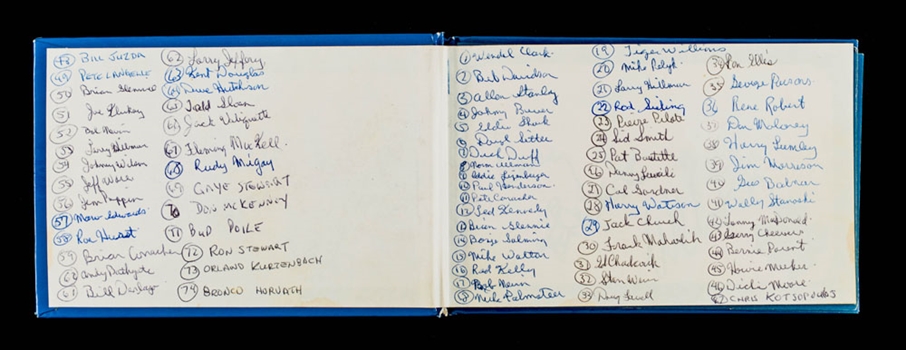 48 Bill Juzda
49 Pete Langelle
50 Brian Glennie
51 Joe Klukay
52
53 Larry Hillman
54 Johnny Wilson
55 Jeff Ware
56 Jim Pappin
57 Marv Edwards
58 Ron Hurst
59 Brian Conacher
60 Andy Bathgate
61 Bill Derlago
62 Larry Jeffrey
63 Kent Douglas
64 Dave Hutchison
65 Todd Sloan
66 Jack Valiquette
67 Fleming Mackell
68 Rudy Migay
69 GAYE STEWART
70 DON MCKENNEY
71 BUD POILE
72 RON STEWART
73 ORLAND KURTENBACH
74 BRONCO HORVATH
1 Wendel Clark
2 Bob Davidson
3 Allan Stanley
4 Johnny Bower
5 Eddie Shack
6 Darryl Sittler
7 Dick Duff
8 Norm Ullman
9 Eddie Litzenberger
10 Paul Henderson
11 Pete Conacher
12 Ted Kennedy
13 Brian Glennie
14 Borje Salming
15 Mike Walton
16 Red Kelly
17 Bob Nevin
18 Mike Palmateer
19 Tiger Williams
20 Mike Pelyk
21 Larry Hillman
22 Rod Seiling
23 Pierre Pilote
24 Sid Smith
25 Pat Boutette
26 Danny Lewicki
27 Cal Gardner
28 Harry Watson
29 Jack Church
30 Frank Mahovlich
31 Ed Chadwick
32 Stan Weir
33 Doug Favell
34 Ron Ellis
35 George Parsons
36 Rene Robert
37 Dan Maloney
38 Harry Lumley
39 Jim Morrison
40 Gus Bodnar
41 Wally Stanowski
42 Lanny McDonald
43 Gerry Cheevers
44 Bernie Parent
45 Howie Meeker
46 Dickie Moore
47 CHRIS KOTSOPOULOS